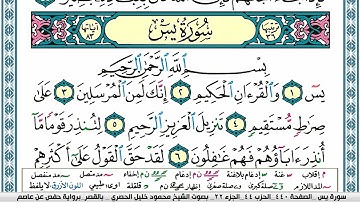 سُورَةُ يسٓ
بِسْمِ ٱللَّهِ ٱلرَّحْمَٰنِ ٱلرَّحِيمِ
يسٓ ١ وَٱلْقُرْءَانِ ٱلْحَكِيمِ ٢ إِنَّكَ لَمِنَ ٱلْمُرْسَلِينَ ٣ عَلَىٰ
صِرَٰطٍ مُّسْتَقِيمٍ ٤ تَنزِيلَ ٱلْعَزِيزِ ٱلرَّحِيمِ ٥ لِتُنذِرَ قَوْمًا مَّآ
أُنذِرَ ءَابَآؤُهُمْ فَهُمْ غَٰفِلُونَ ٦ لَقَدْ حَقَّ ٱلْقَوْلُ عَلَىٰٓ أَكْثَرِهِمْ
سورة يس الصفحة ٤٤٠ الحزب ٤٤ الجزء ٢٢ بصوت الشيخ محمود خليل الحصري بالقصر برواية حفص عن عاصم